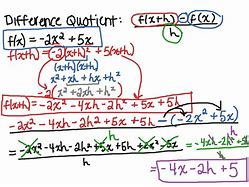 Difference Quotient: f(x+h) - f(x)
h
f(x) = -2x² + 5x
f(x+h) = -2(x+h)² + 5(x+h)
(x+h)(x+h)
x² + xh + hx + h²
-2(x² + 2xh + h²)
f(x+h) = -2x² - 4xh - 2h² + 5x + 5h
-2x² - 4xh - 2h² + 5x + 5h - (-2x² + 5x)
h
= -2x² - 4xh - 2h² + 5x + 5h + 2x² - 5x = -4xh - 2h² + 5h
h h
= -4x - 2h + 5